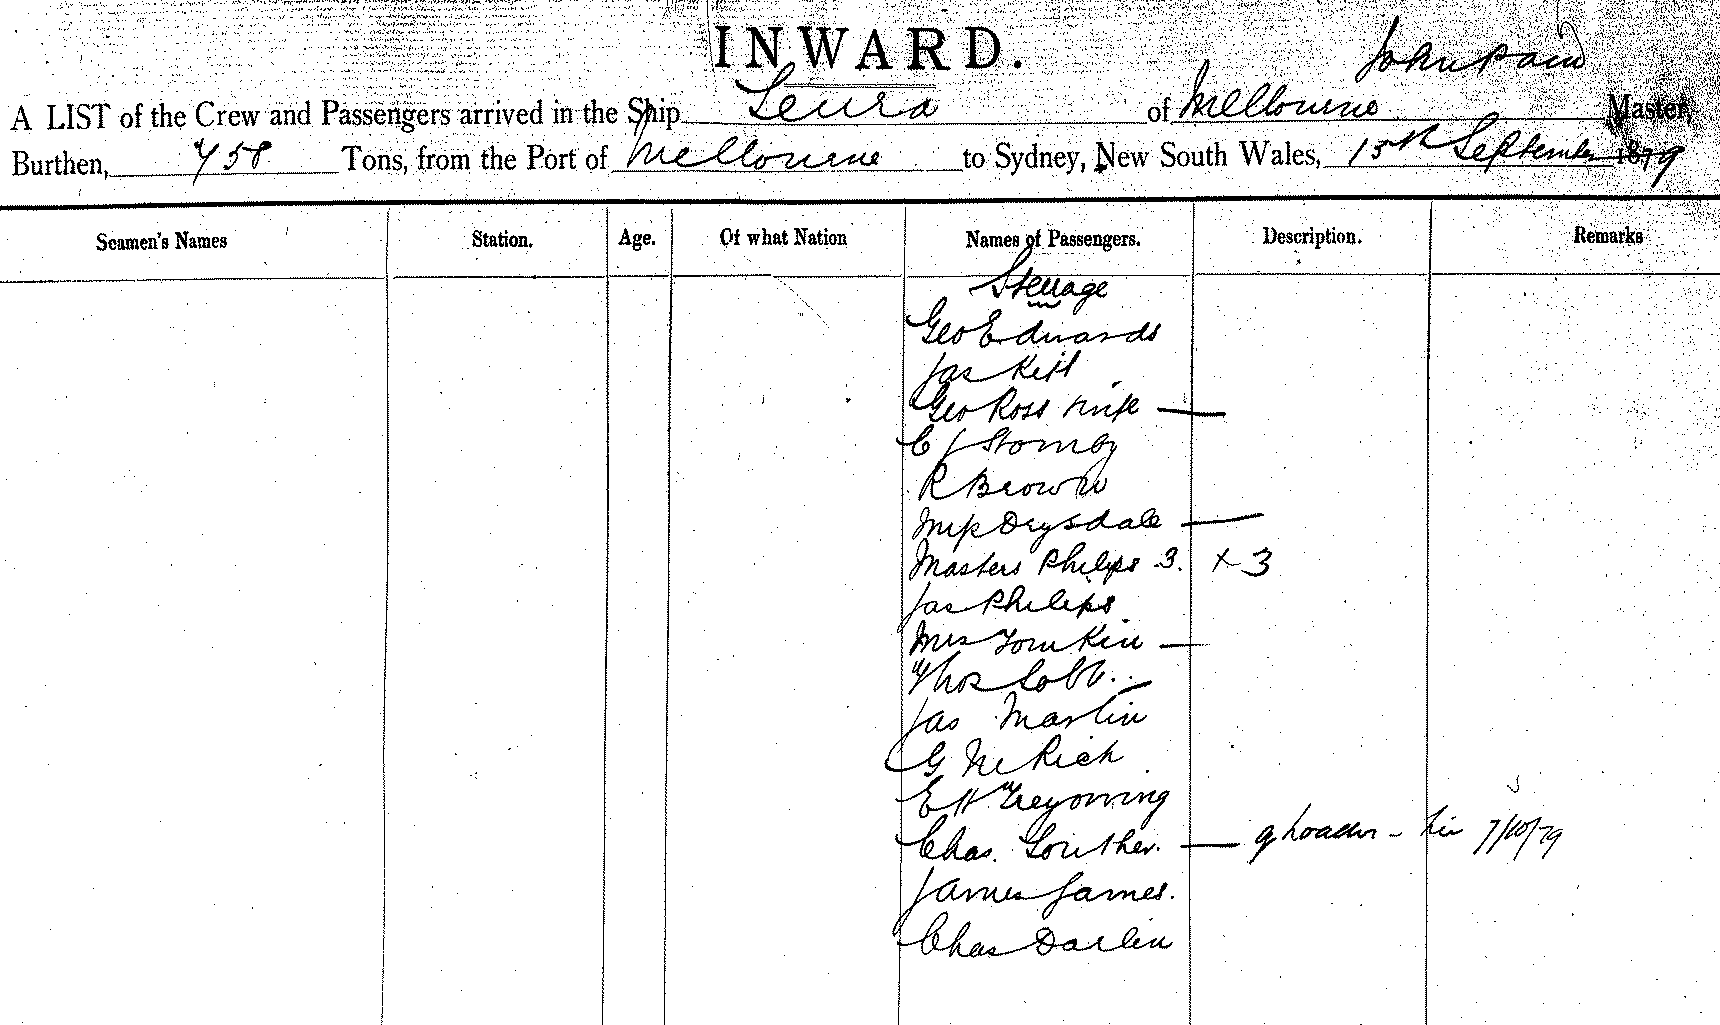 INWARD.
John Paul
A LIST of the Crew and Passengers arrived in the Ship Leura of Melbourne Master,
Burthen, 758 Tons, from the Port of Melbourne to Sydney, New South Wales, 15th September 1879
Seamen's Names Station. Age. Of what Nation Names of Passengers. Description. Remarks
Steerage
Geo Edwards
Jas
Geo Ross
C J Stornby
R Brown
Drysdale —
Masters Philips 3. x 3
Jas Philips
Mrs Tomkin —
Thos Cobb..
Jas Martin
G
E H
Chas. — 7/10/79
James James.
Chas Darlin